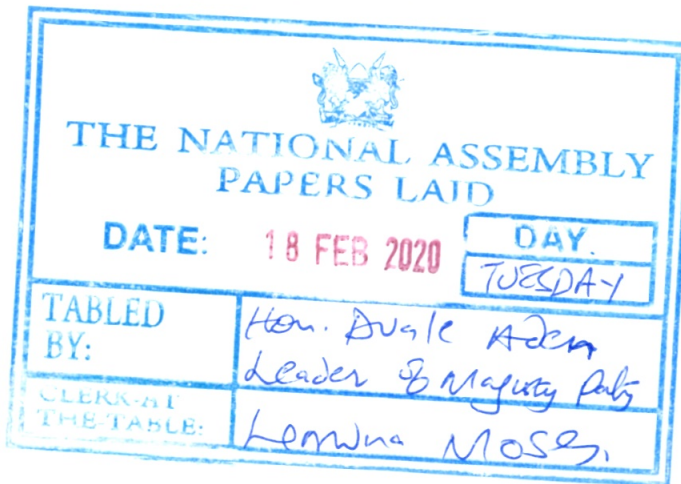 THE NATIONAL ASSEMBLY
PAPERS LAID
DATE: 18 FEB 2020
DAY.
TUESDAY
TABLED BY:
Hon. Duale Aden
Leader of Majority Party
CLERK-AT THE-TABLE:
Lemuna Moses.